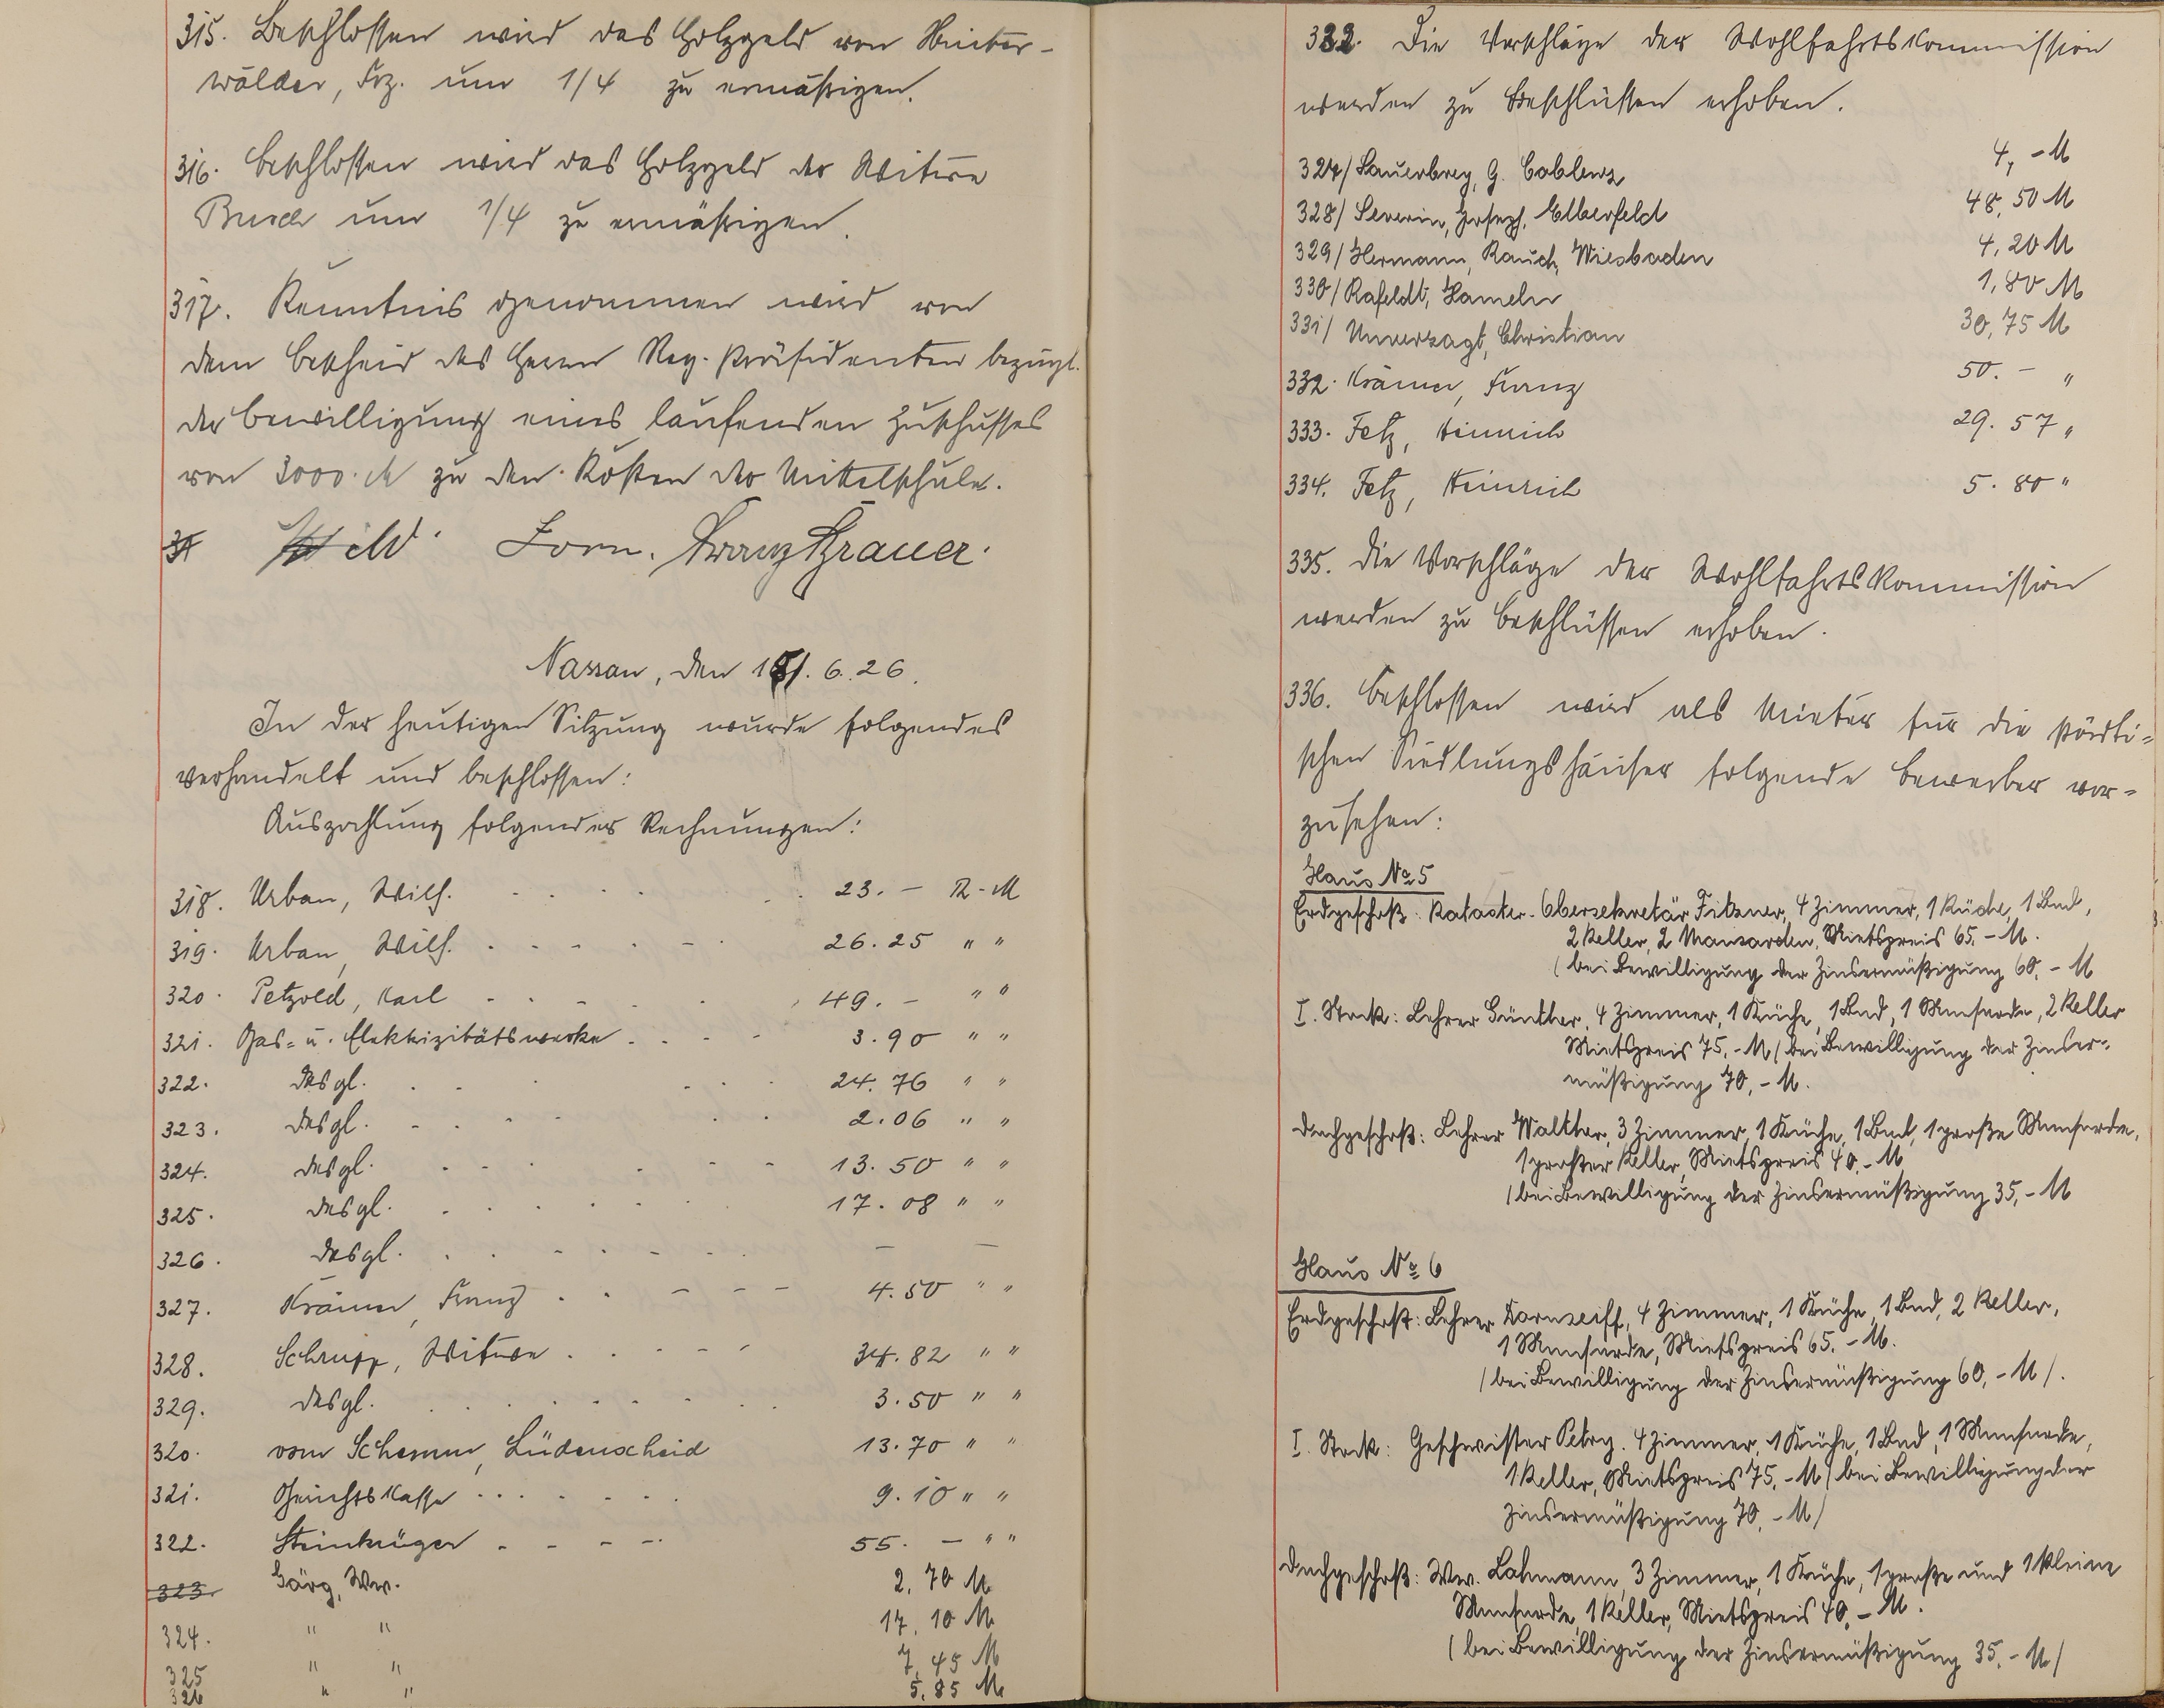 315. Beschlossen wird das Holzgeld von Hinter-
wälder, Frz. um 1/4 zu ermäßigen.
316. Beschlossen wird das Holzgeld der Witwe
Busch um 1/4 zu ermäßigen.
317. Kenntnis genommen wird von
dem Bescheid des Herrn Reg. Präsidenten bezügl.
der Bewilligung eines laufenden Zuschusses
von 3000.M zu den Kosten der Mittelschule.
Zorn. Franz Krauer.
Nassau, den 6. 26.
In der heutigen Sitzung wurde folgendes
verhandelt und beschlossen:
Auszahlung folgender Rechnungen:
318. Urban, Wilh. 23. - R-M
319. Urban, Wilh. 26.25 " "
320. Petzold, Karl 49. - " "
321. Gas- u. Elektrizitätswerke 3.90 " "
322. desgl. 24.76 " "
323. desgl. 2.06 " "
324. desgl. 13.50 " "
325. desgl. 17.08 " "
326. desgl. - -
327. Krämer, Franz 4.50 " "
328. Schrupp, Witwe 34.82 " "
329. desgl. 3.50 " "
320. vom Schemm, Lüdenscheid 13.70 " "
321. Gerichtskasse 9.10 " "
322. Steinkrüger 55. - " "
323. Görg, Ww. 2,70 M
324. " " 17,10 M
325 " " 7,45 M
326 " " 5,85 M
323. Die Vorschläge der Wohlfahrtskommission
werden zu Beschlüssen erhoben.
327/ Sauerbrey, G. Coblenz 4,-M
328/ Severin, Joseph, Elberfeld 48,50 M
329/ Hermann, Rauch, Wiesbaden 4,20 M
330/ Rafeldt, Hameln 1,80 M
331/ Unverzagt, Christian 30,75 M
332. Krämer, Franz 50. - "
333. Fetz, Heinrich 29.57 "
334. Fetz, Heinrich 5.80 "
335. Die Vorschläge der Wohlfahrtskommission
werden zu Beschlüssen erhoben.
336. Beschlossen wird als Mieter für die städti-
schen Siedlungshäuser folgende Bewerber vor-
zusehen:
Haus No 5
Erdgeschoß: Kataster-Obersekretär Fitzner, 4 Zimmer, 1 Küche, 1 Bad,
2 Keller, 2 Mansarden, Mietspreis 65,-M.
(bei Bewilligung der Zinsermäßigung 60,-M
I. Stock: Lehrer Günther, 4 Zimmer, 1 Küche, 1 Bad, 1 Mansarde, 2 Keller
Mietspreis 75,-M (bei Bewilligung der Zinser-
mäßigung 70,-M.
Dachgeschoß: Lehrer Walther, 3 Zimmer, 1 Küche, 1 Bad, 1 große Mansarde,
1 großer Keller, Mietspreis 40,-M
(bei Bewilligung der Zinsermäßigung 35,-M
Haus No 6
Erdgeschoß: Lehrer Dornseiff, 4 Zimmer, 1 Küche, 1 Bad, 2 Keller,
1 Mansarde, Mietspreis 65,-M.
(bei Bewilligung der Zinsermäßigung 60,-M).
I. Stock: Geschwister Petry. 4 Zimmer, 1 Küche, 1 Bad, 1 Mansarde,
1 Keller, Mietspreis 75,-M (bei Bewilligung der
Zinsermäßigung 70,-M)
Dachgeschoß: Ww. Lahmann, 3 Zimmer, 1 Küche, 1 große und 1 kleine
Mansarde, 1 Keller, Mietspreis 40,-M.
(bei Bewilligung der Zinsermäßigung 35,-M)